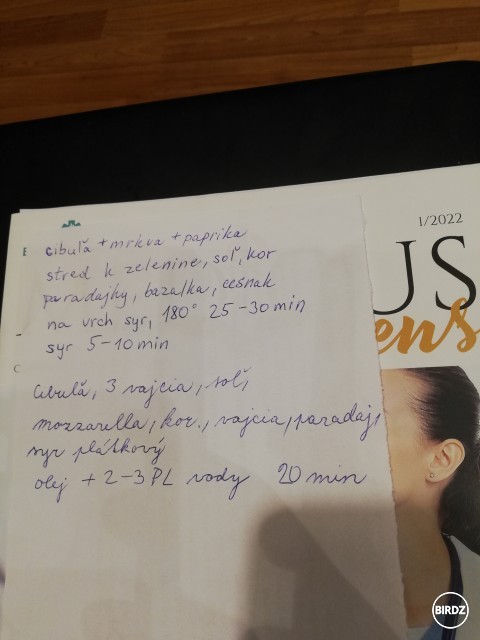 1/2022
US
ens
cibuľa + mrkva + paprika
stred k zelenine, soľ, kor
paradajky, bazalka, cesnak
na vrch syr, 180° 25-30 min
syr 5-10 min
Cibuľa, 3 vajcia, soľ,
mozzarella, kor., vajcia, paradaj,
syr plátkový
olej + 2-3 PL vody 20 min
BIRDZ